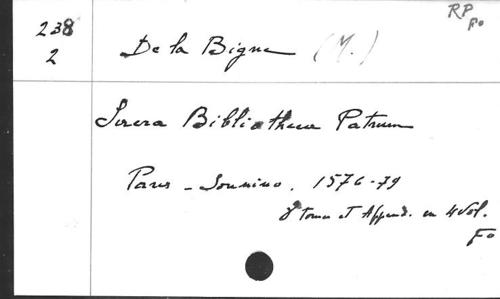 RP
Fo
238
2
De la Bigne (M.)
Sacra Bibliotheca Patrum
Paris - Sonnius. 1576-79
8 tomes et Append. en 4 Vol.
Fo